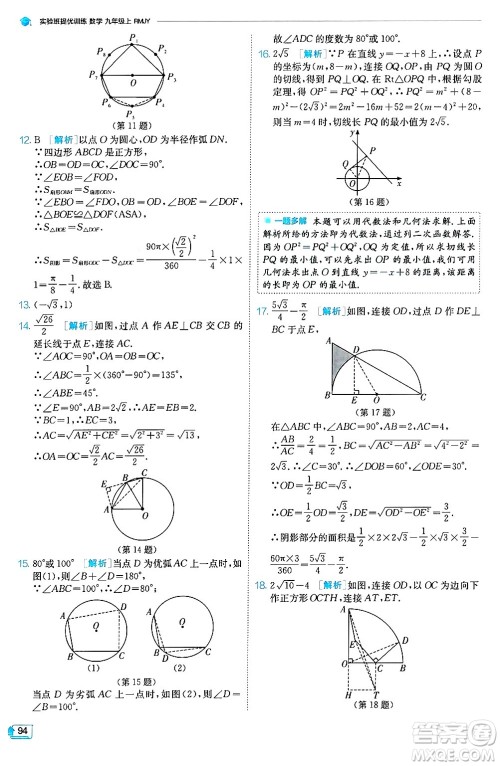 实验班提优训练 数学 九年级上 RMJY
A
B
C
D
O
(第 11 题)
12. B [解析]以点 O 为圆心,OD 为半径作弧 DN.
∵四边形 ABCD 是正方形,
∴OB=OD=OC,∠DOC=90°.
∵∠EOB=∠FOD,
∴S扇形BOM=S扇形DON.
∵∠EBO=∠FDO=45°,∠BOE=∠DOF,
∴△BOE≌△DOF(ASA).
∴S△BOE=S△DOF.
∴S阴影部分=S扇形DOC-S△DOC=90π×(√2/2)²/360-1/4×1×
1=π/8-1/4. 故选 B.
13. (-√3,1)
14. √26/2 [解析]如图,过点 A 作 AE⊥CB 交 CB 的
延长线于点 E,连接 AC.
∵∠AOC=90°,
∴∠ABC=1/2(360°-90°)=135°.
∴∠ABE=180°-135°=45°.
∵AB=2√2,∴AE=BE=2.
∵BC=1,∴CE=3.
∴AC=√(AE²+CE²)=√(2²+3²)=√13.
∴OA=OC=√2/2 AC=√26/2.
E B C
A O
(第 14 题)
15. 80°或 100° [解析]当点 D 为优弧 AC 上一点时,如
图(1),则∠B+∠D=180°,
A D
B C
(1)
A
B D
C
(2)
(第 15 题)
当点 D 为劣弧 AC 上一点时,如图(2),∠B=∠D.
故∠ADC 的度数是 80°或 100°.
16. 2√5 [解析]∵P 在直线 y=-x+8 上,∴设点 P
的坐标为(m,8-m).连接 OQ,OP,∵PQ 为⊙O
的切线,∴PQ⊥OQ.在 Rt△OPQ 中,根据勾股定
理,得 OP²=PQ²+OQ²,∴PQ²=m²+(8-m)²-
(2√3)²=2m²-16m+52=2(m-4)²+20,
则当 m=4 时,切线长 PQ 的最小值为 2√5.
y
P
Q
O x
(第 16 题)
一题多解 本题可以用代数法和几何法求解.上面
解析所给的方法即为代数法,通过二次函数解答.
因为 OP²=PQ²+OQ²,而 OQ 为定值,所以当
OP 的长最小时,切线长 PQ 的值最小,所以我们
可用几何法求出点 O 到 y=-x+8 的距离,该距离
的长即为 OP 的最小值.
17. 5√3/4-π/2 [解析]如图,连接 OD,过点 D 作 DE⊥
BC 于点 E.
A
D
B E O C
(第 17 题)
在△ABC 中,∠ABC=90°,AB=2,AC=4,
∴AB/AC=2/4=1/2,BC=√(AC²-AB²)=√(4²-2²)=
2√3.∴∠ACB=30°.∴∠DOB=60°.
∵OD=1/2BC=√3,∴DE=3/2.
∴OE=√3/2.∵DE=√(OD²-OE²)=3/2,
∴阴影部分的面积是 1/2×2×2√3-1/2×√3×3/2-
60π×3/360=5√3/4-π/2.
18. 2√10-4 [解析]如图,连接 OD,以 OC 为边向下
作正方形 OCTH,连接 AT,ET.
A
D
O C B
H T
(第 18 题)
94
答案圈
MXQE.COM